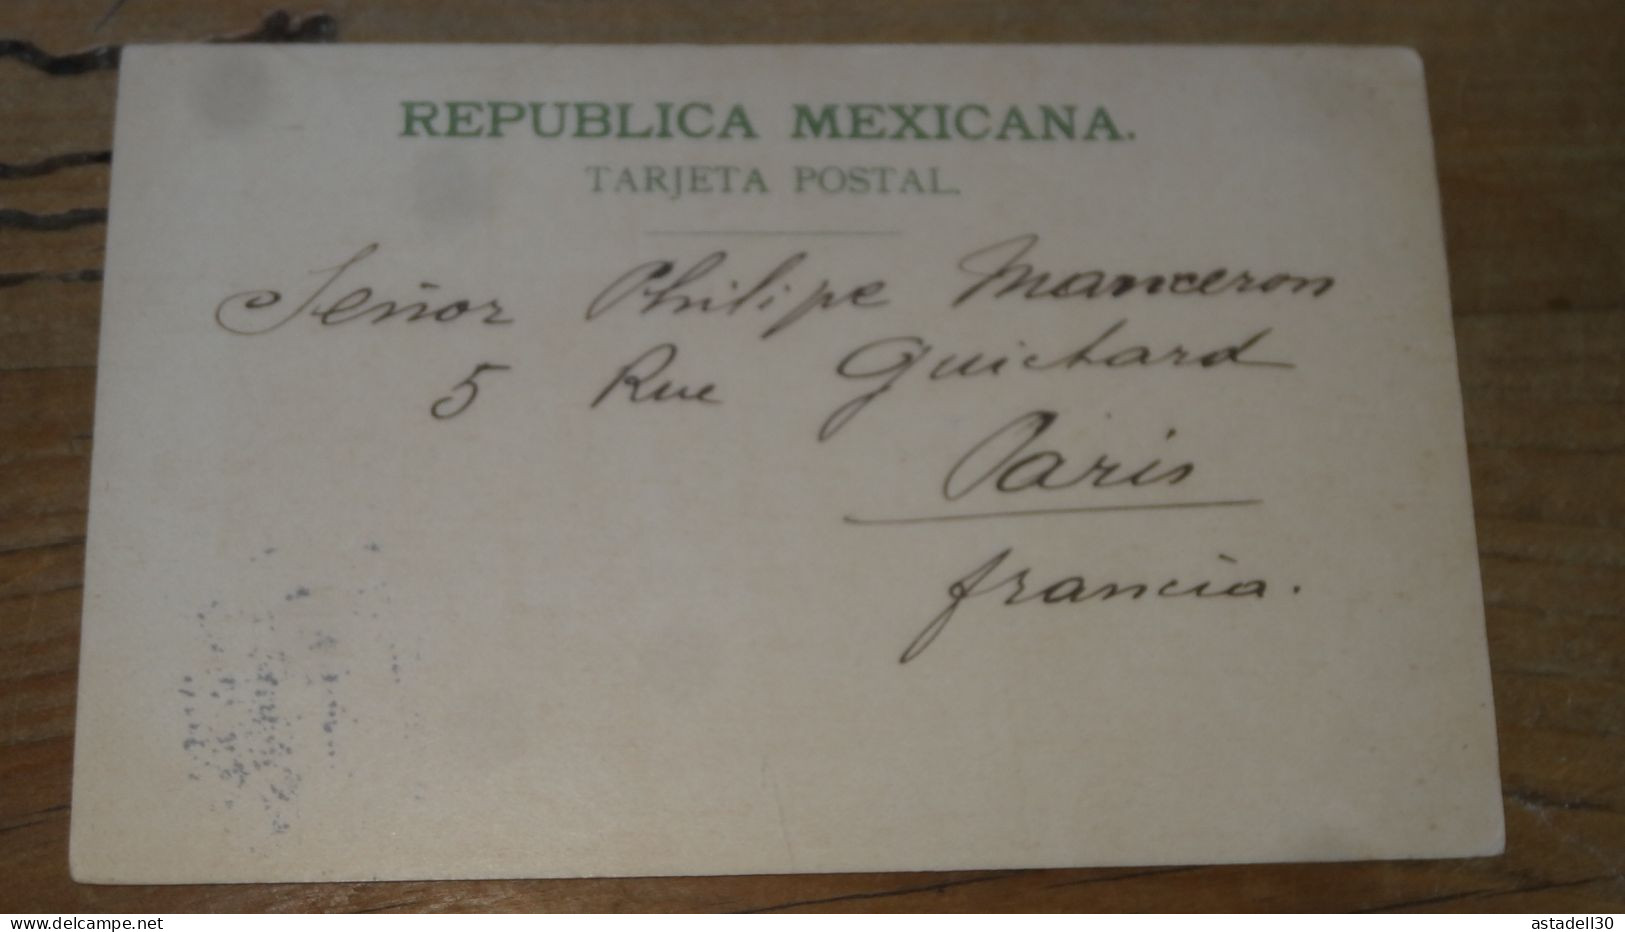 REPUBLICA MEXICANA.
TARJETA POSTAL.
Señor Philipe Manceron
5 Rue Guichard
Paris
francia.
www.delcampe.net
astadell30